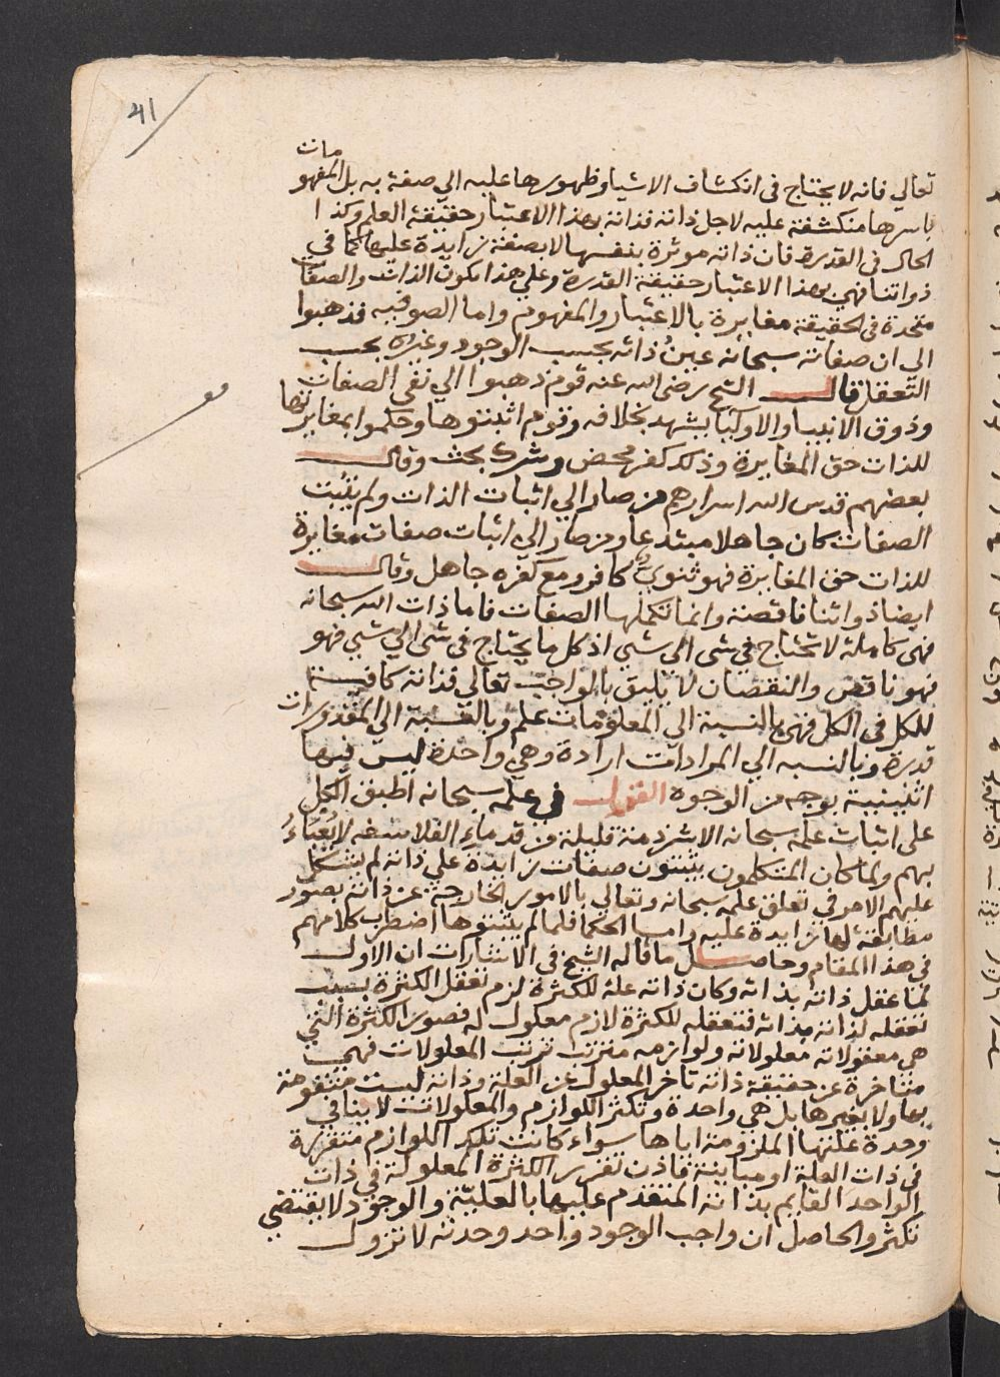 41
تعالي فانه لا يحتاج في انكشاف الاشيا وظهورها عليه الي صفة به بل المفهومات
باسرها منكشفة عليه لاجل ذاته فذاته بهذا الاعتبار حقيقة العلم وكذا
الحال في القدرة فان ذاته موثرة بنفسها لا بصفة زايدة عليها كما في
ذواتنا فهي بهذا الاعتبار حقيقة القدرة وعلي هذا يكون الذات والصفات
متحدة في الحقيقة مغايرة بالاعتبار والمفهوم واما الصوفيه فذهبوا
الي ان صفاته سبحانه عين ذاته بحسب الوجود وغيره بحسب
التعقل قال الشيخ رضي الله عنه قوم ذهبوا الي نفي الصفات
وذوق الانبيا والاوليا يشهد بخلافه وقوم اثبتوها وحكموا بمغايرتها
للذات حق المغايرة وذلك كفر محض وشرك بحث وقال
بعضهم قدس الله اسرارهم من صار الي اثبات الذات ولم يثبت
الصفات كان جاهلا مبتدعا ومن صار الي اثبات صفات مغايرة
للذات حق المغايرة فهو ثنوي كافر ومع كفره جاهل وقال
ايضا ذواتنا ناقصة وانما تكملها الصفات فاما ذات الله سبحانه
فهي كاملة لا تحتاج في شي الي شي اذ كل ما يحتاج في شي الي شي فهو
فهو ناقص والنقصان لا يليق بالواجب تعالي فذاته كافية
للكل في الكل فهي بالنسبة الي المعلومات علم وبالنسبة الي المقدورات
قدرة وبالنسبه الي المرادات ارادة وهي واحدة ليس فيها
اثنينية بوجه من الوجوه القول في علمه سبحانه اطبق الكل
علي اثبات علمه سبحانه الا شرذمة قليلة من قدماء الفلاسفه لا يعباء
بهم ولما كان المتكلمون يثبتون صفات زايدة علي ذاته لم يشكل
عليهم الامر في تعلق علمه سبحانه وتعالي بالامور الخارجة عن ذاته بصور
مطابقة لها زايدة عليه واما الحكما فلما لم يثبتوها اضطرب كلامهم
في هذا المقام وحاصل ما قاله الشيخ في الاشارات ان الاول
لما عقل ذاته بذاته وكان ذاته علة للكثرة لزم تعقل الكثرة بسبب
تعقله لذاته بذاته فتعقله للكثرة لازم معلول له فصور الكثرة التي
هي معقولاته معلولاته ولوازمه مترتبة ترتب المعلولات فهي
متاخرة عن حقيقة ذاته تاخر المعلول عن العلة وذاته ليست متقومة
بها ولا بغيرها بل هي واحدة وتكثر اللوازم والمعلولات لا ينافي
وحدة علتها الملزومة اياها سواء كانت تلك اللوازم متقررة
في ذات العلة او مباينة فاذن تقرر الكثرة المعلولة في ذات
الواحد القايم بذاته المتقدم عليها بالعلية والوجود لا يقتضي
تكثر والحاصل ان واجب الوجود واحد وحدته لا تزول